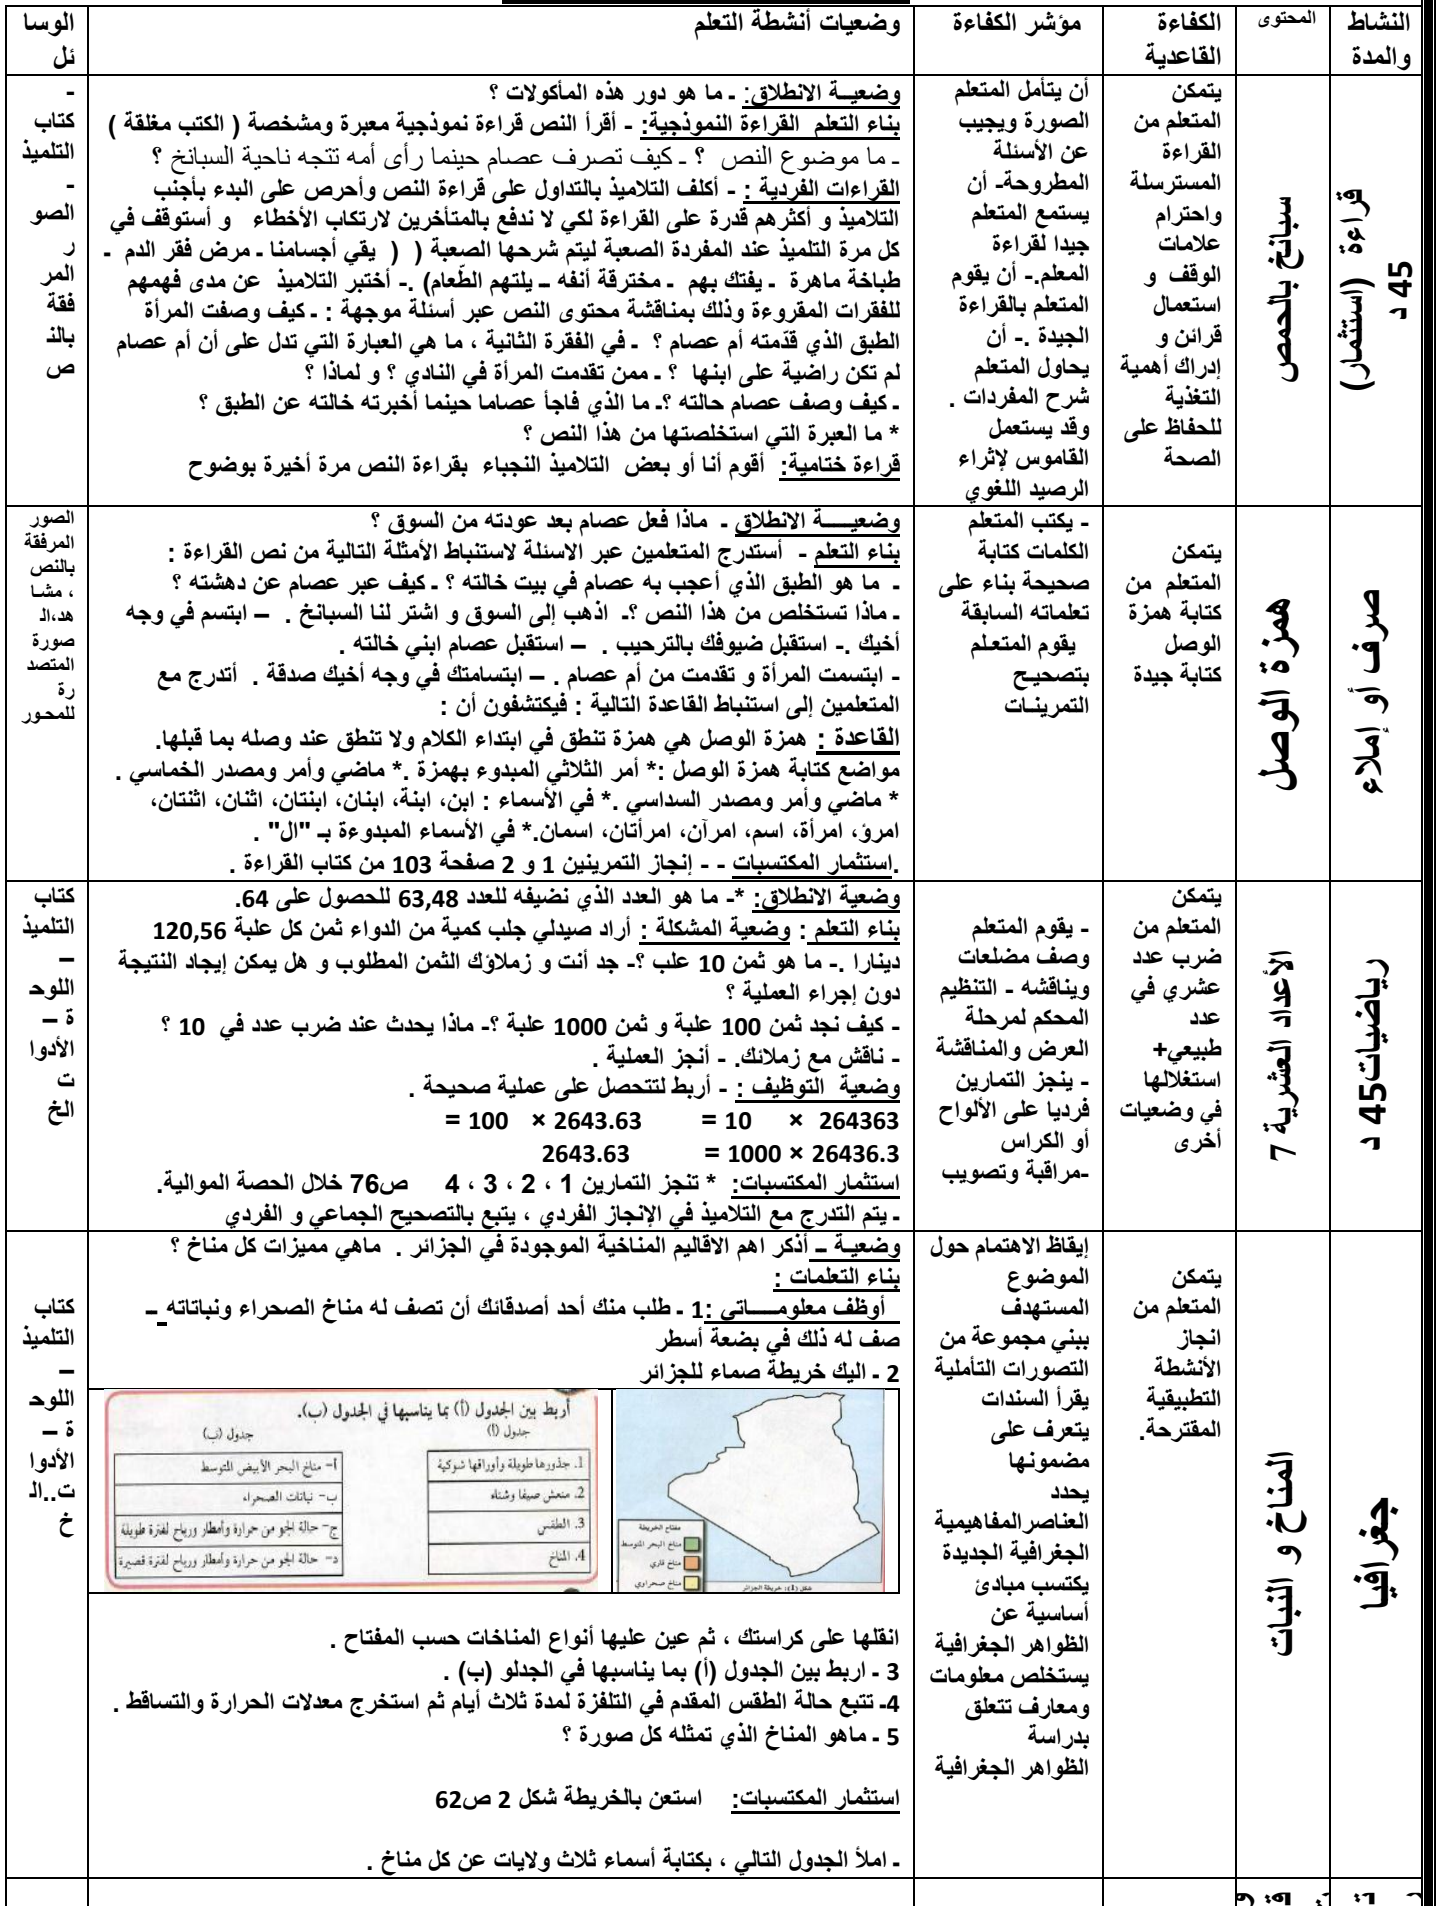 النشاط والمدة
المحتوى
الكفاءة القاعدية
مؤشر الكفاءة
وضعيات أنشطة التعلم
الوسا
ئل
قراءة (استثمار)
45 د
سبانخ بالحمص
يتمكن
المتعلم من
القراءة
المسترسلة
واحترام
علامات
الوقف و
استعمال
قرائن و
إدراك أهمية
التغذية
للحفاظ على
الصحة
أن يتأمل المتعلم
الصورة ويجيب
عن الأسئلة
المطروحة- أن
يستمع المتعلم
جيدا لقراءة
المعلم.- أن يقوم
المتعلم بالقراءة
الجيدة .- أن
يحاول المتعلم
شرح المفردات .
وقد يستعمل
القاموس لإثراء
الرصيد اللغوي
وضعيــة الانطلاق: ـ ما هو دور هذه المأكولات ؟
بناء التعلم القراءة النموذجية: - أقرأ النص قراءة نموذجية معبرة ومشخصة ( الكتب مغلقة )
ـ ما موضوع النص ؟ ـ كيف تصرف عصام حينما رأى أمه تتجه ناحية السبانخ ؟
القراءات الفردية : - أكلف التلاميذ بالتداول على قراءة النص وأحرص على البدء بأجنب
التلاميذ و أكثرهم قدرة على القراءة لكي لا ندفع بالمتأخرين لارتكاب الأخطاء و أستوقف في
كل مرة التلميذ عند المفردة الصعبة ليتم شرحها الصعبة ( ( يقي أجسامنا ـ مرض فقر الدم ـ
طباخة ماهرة ـ يفتك بهم ـ مخترقة أنفه ــ يلتهم الطّعام) .- أختبر التلاميذ عن مدى فهمهم
للفقرات المقروءة وذلك بمناقشة محتوى النص عبر أسئلة موجهة : ـ كيف وصفت المرأة
الطبق الذي قدّمته أم عصام ؟ ـ في الفقرة الثانية ، ما هي العبارة التي تدل على أن أم عصام
لم تكن راضية على ابنها ؟ ـ ممن تقدمت المرأة في النادي ؟ و لماذا ؟
ـ كيف وصف عصام حالته ؟ـ ما الذي فاجأ عصاما حينما أخبرته خالته عن الطبق ؟
* ما العبرة التي استخلصتها من هذا النص ؟
قراءة ختامية: أقوم أنا أو بعض التلاميذ النجباء بقراءة النص مرة أخيرة بوضوح
-
كتاب
التلميذ
-
الصو
ر
المر
فقة
بالذ
ص
صرف أو إملاء
همزة الوصل
يتمكن
المتعلم من
كتابة همزة
الوصل
كتابة جيدة
- يكتب المتعلم
الكلمات كتابة
صحيحة بناء على
تعلماته السابقة
يقوم المتعلم
بتصحيح
التمرينات
وضعيــــة الانطلاق ـ ماذا فعل عصام بعد عودته من السوق ؟
بناء التعلم - أستدرج المتعلمين عبر الاسئلة لاستنباط الأمثلة التالية من نص القراءة :
ـ ما هو الطبق الذي أعجب به عصام في بيت خالته ؟ ـ كيف عبر عصام عن دهشته ؟
ـ ماذا تستخلص من هذا النص ؟ـ اذهب إلى السوق و اشتر لنا السبانخ . – ابتسم في وجه
أخيك .- استقبل ضيوفك بالترحيب . – استقبل عصام ابني خالته .
- ابتسمت المرأة و تقدمت من أم عصام . – ابتسامتك في وجه أخيك صدقة . أتدرج مع
المتعلمين إلى استنباط القاعدة التالية : فيكتشفون أن :
القاعدة : همزة الوصل هي همزة تنطق في ابتداء الكلام ولا تنطق عند وصله بما قبلها.
مواضع كتابة همزة الوصل :* أمر الثلاثي المبدوء بهمزة .* ماضي وأمر ومصدر الخماسي .
* ماضي وأمر ومصدر السداسي .* في الأسماء : ابن، ابنة، ابنان، ابنتان، اثنان، اثنتان،
امرؤ، امرأة، اسم، امرآن، امرأتان، اسمان.* في الأسماء المبدوءة بـ "ال" .
.استثمار المكتسبات - - إنجاز التمرينين 1 و 2 صفحة 103 من كتاب القراءة .
الصور
المرفقة
بالنص
، مشا
هد،الـ
صورة
المتصد
رة
للمحور
رياضيات45 د
الأعداد العشرية 7
يتمكن
المتعلم من
ضرب عدد
عشري في
عدد
طبيعي+
استغلالها
في وضعيات
أخرى
- يقوم المتعلم
وصف مضلعات
ويناقشه - التنظيم
المحكم لمرحلة
العرض والمناقشة
- ينجز التمارين
فرديا على الألواح
أو الكراس
-مراقبة وتصويب
وضعية الانطلاق: *- ما هو العدد الذي نضيفه للعدد 63,48 للحصول على 64.
بناء التعلم : وضعية المشكلة : أراد صيدلي جلب كمية من الدواء ثمن كل علبة 120,56
دينارا .- ما هو ثمن 10 علب ؟- جد أنت و زملاؤك الثمن المطلوب و هل يمكن إيجاد النتيجة
دون إجراء العملية ؟
- كيف نجد ثمن 100 علبة و ثمن 1000 علبة ؟- ماذا يحدث عند ضرب عدد في 10 ؟
- ناقش مع زملائك. - أنجز العملية .
وضعية التوظيف : - أربط لتتحصل على عملية صحيحة .
= 100 × 2643.63 = 10 × 264363
2643.63 = 1000 × 26436.3
استثمار المكتسبات: * تنجز التمارين 1 ، 2 ، 3 ، 4 ص76 خلال الحصة الموالية.
ـ يتم التدرج مع التلاميذ في الإنجاز الفردي ، يتبع بالتصحيح الجماعي و الفردي
كتاب
التلميذ
–
اللوحـ
ة –
الأدوا
ت
الخ
جغرافيا
المناخ و النبات
يتمكن
المتعلم من
انجاز
الأنشطة
التطبيقية
المقترحة.
إيقاظ الاهتمام حول
الموضوع
المستهدف
ببني مجموعة من
التصورات التأملية
يقرأ السندات
يتعرف على
مضمونها
يحدد
العناصرالمفاهيمية
الجغرافية الجديدة
يكتسب مبادئ
أساسية عن
الظواهر الجغرافية
يستخلص معلومات
ومعارف تتعلق
بدراسة
الظواهر الجغرافية
وضعيـة – أذكر اهم الاقاليم المناخية الموجودة في الجزائر . ماهي مميزات كل مناخ ؟
بناء التعلمات :
أوظف معلومــــاتي :1 ـ طلب منك أحد أصدقائك أن تصف له مناخ الصحراء ونباتاته ــ
صف له ذلك في بضعة أسطر
2 ـ اليك خريطة صماء للجزائر
مفتاح الخريطة
مناخ البحر المتوسط
مناخ قاري
مناخ صحراوي
شكل (1): خريطة الجزائر
أربط بين الجدول (أ) بما يناسبها في الجدول (ب).
جدول (أ)
1. جذورها طويلة وأوراقها شوكية
2. منعش صيفا وشتاء
3. الطقس
4. المناخ
جدول (ب)
أ- مناخ البحر الأبيض المتوسط
ب- نباتات الصحراء
ج- حالة الجو من حرارة وأمطار ورياح لفترة طويلة
د- حالة الجو من حرارة وأمطار ورياح لفترة قصيرة
انقلها على كراستك ، ثم عين عليها أنواع المناخات حسب المفتاح .
3 ـ اربط بين الجدول (أ) بما يناسبها في الجدلو (ب) .
4ـ تتبع حالة الطقس المقدم في التلفزة لمدة ثلاث أيام ثم استخرج معدلات الحرارة والتساقط .
5 ـ ماهو المناخ الذي تمثله كل صورة ؟
استثمار المكتسبات: استعن بالخريطة شكل 2 ص62
ـ املأ الجدول التالي ، بكتابة أسماء ثلاث ولايات عن كل مناخ .
كتاب
التلميذ
–
اللوحـ
ة –
الأدوا
ت..الـ
خ